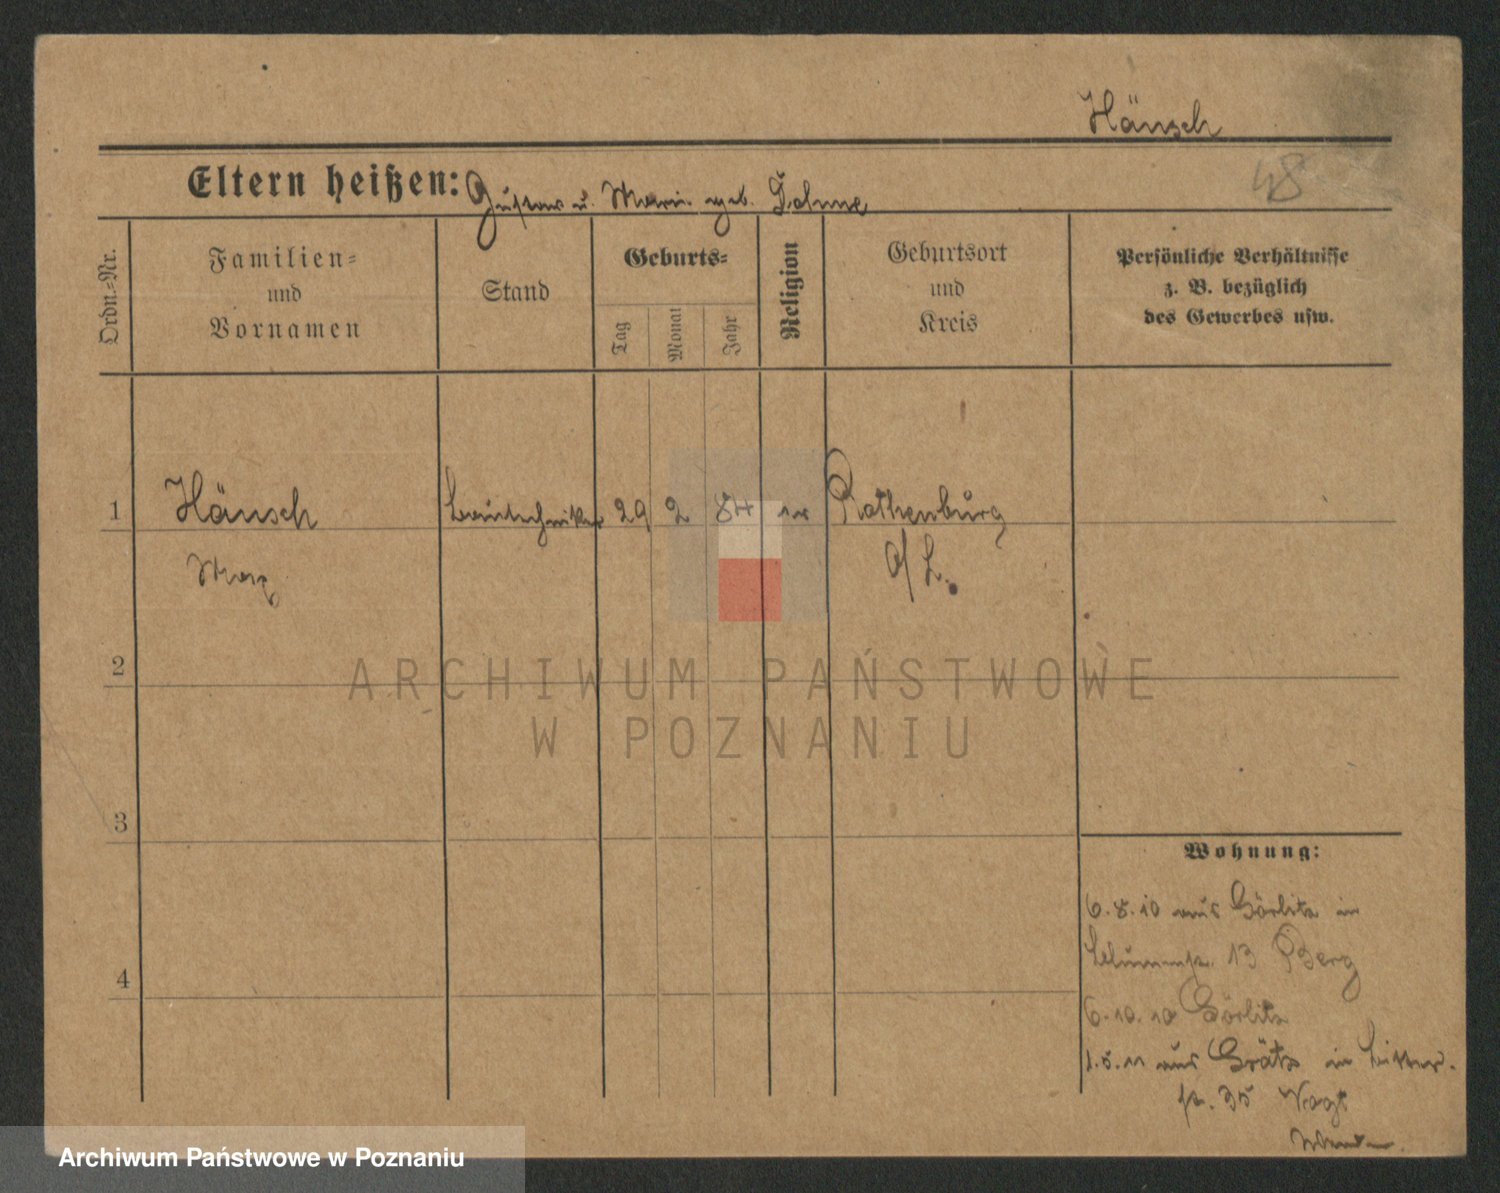 Hänsch
48
Eltern heißen: Gustav u. Marie geb. Dohme
Ordn.-Nr.
Familien-
und
Vornamen
Stand
Geburts-
Tag
Monat
Jahr
Religion
Geburtsort
und
Kreis
Persönliche Verhältnisse
z. B. bezüglich
des Gewerbes usw.
1 Hänsch Bautechniker 29 2 84 Rothenburg
Max O/L.
2
3
4
Wohnung:
6.8.10 aus Görlitz in
13 Berg
6.10.10 Görlitz
1.5.11 aus Grätz in
str. 35 Vogt
ARCHIWUM PAŃSTWOWE
W POZNANIU
Archiwum Państwowe w Poznaniu